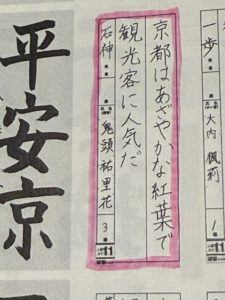 一歩
大内 楓莉
1
京都はあざやかな紅葉で
観光客に人気だ
石神
鬼頭 祐里花
3
11
平安京